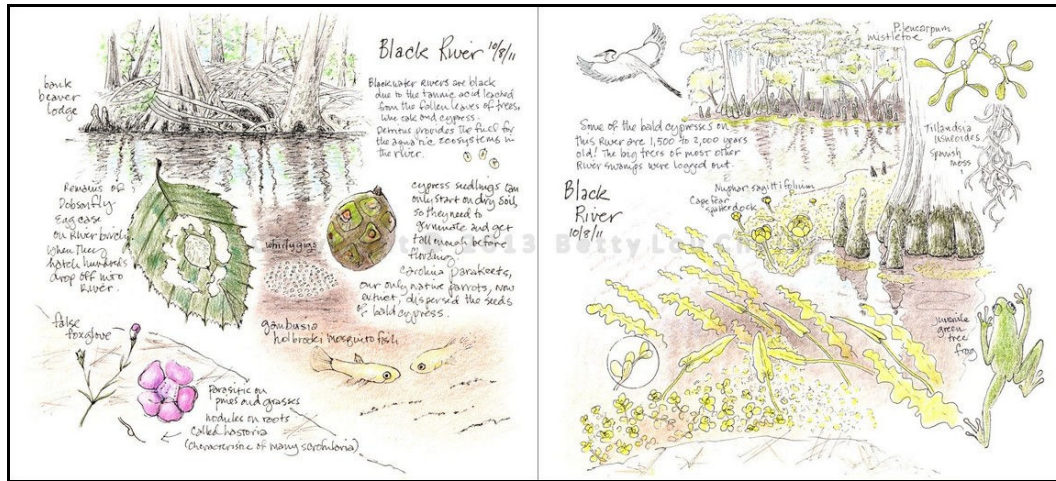 Black River 10/8/11
bank
beaver
lodge
Blackwater Rivers are black
due to the tannic acid leached
from the fallen leaves of trees,
like oak and cypress.
Detritus provides the fuel for
the aquatic ecosystems in
the river.
Remains of
Dobsonfly
Egg case
on River birch
when they
hatch hundreds
drop off into
River.
whirlygigs
cypress seedlings can
only start on dry soil,
so they need to
germinate and get
tall enough before
flooding.
Carolina Parakeets,
our only native parrots, now
extinct, dispersed the seeds
of bald cypress.
gambusia
holbrooki mosquito fish
false
foxglove
Parasitic on
pines and grasses
nodules on roots
called hastoria
(characteristic of many scrofularia)
P. leucarpum
mistletoe
Some of the bald cypresses on
this River are 1,500 to 2,000 years
old! The big trees of most other
River swamps were logged out.
Tillandsia
usneoides
Spanish
moss
Nuphar sagittifolium
Cape Fear
spatterdock
Black
River
10/8/11
juvenile
green
tree
frog
2013 Betty Lou